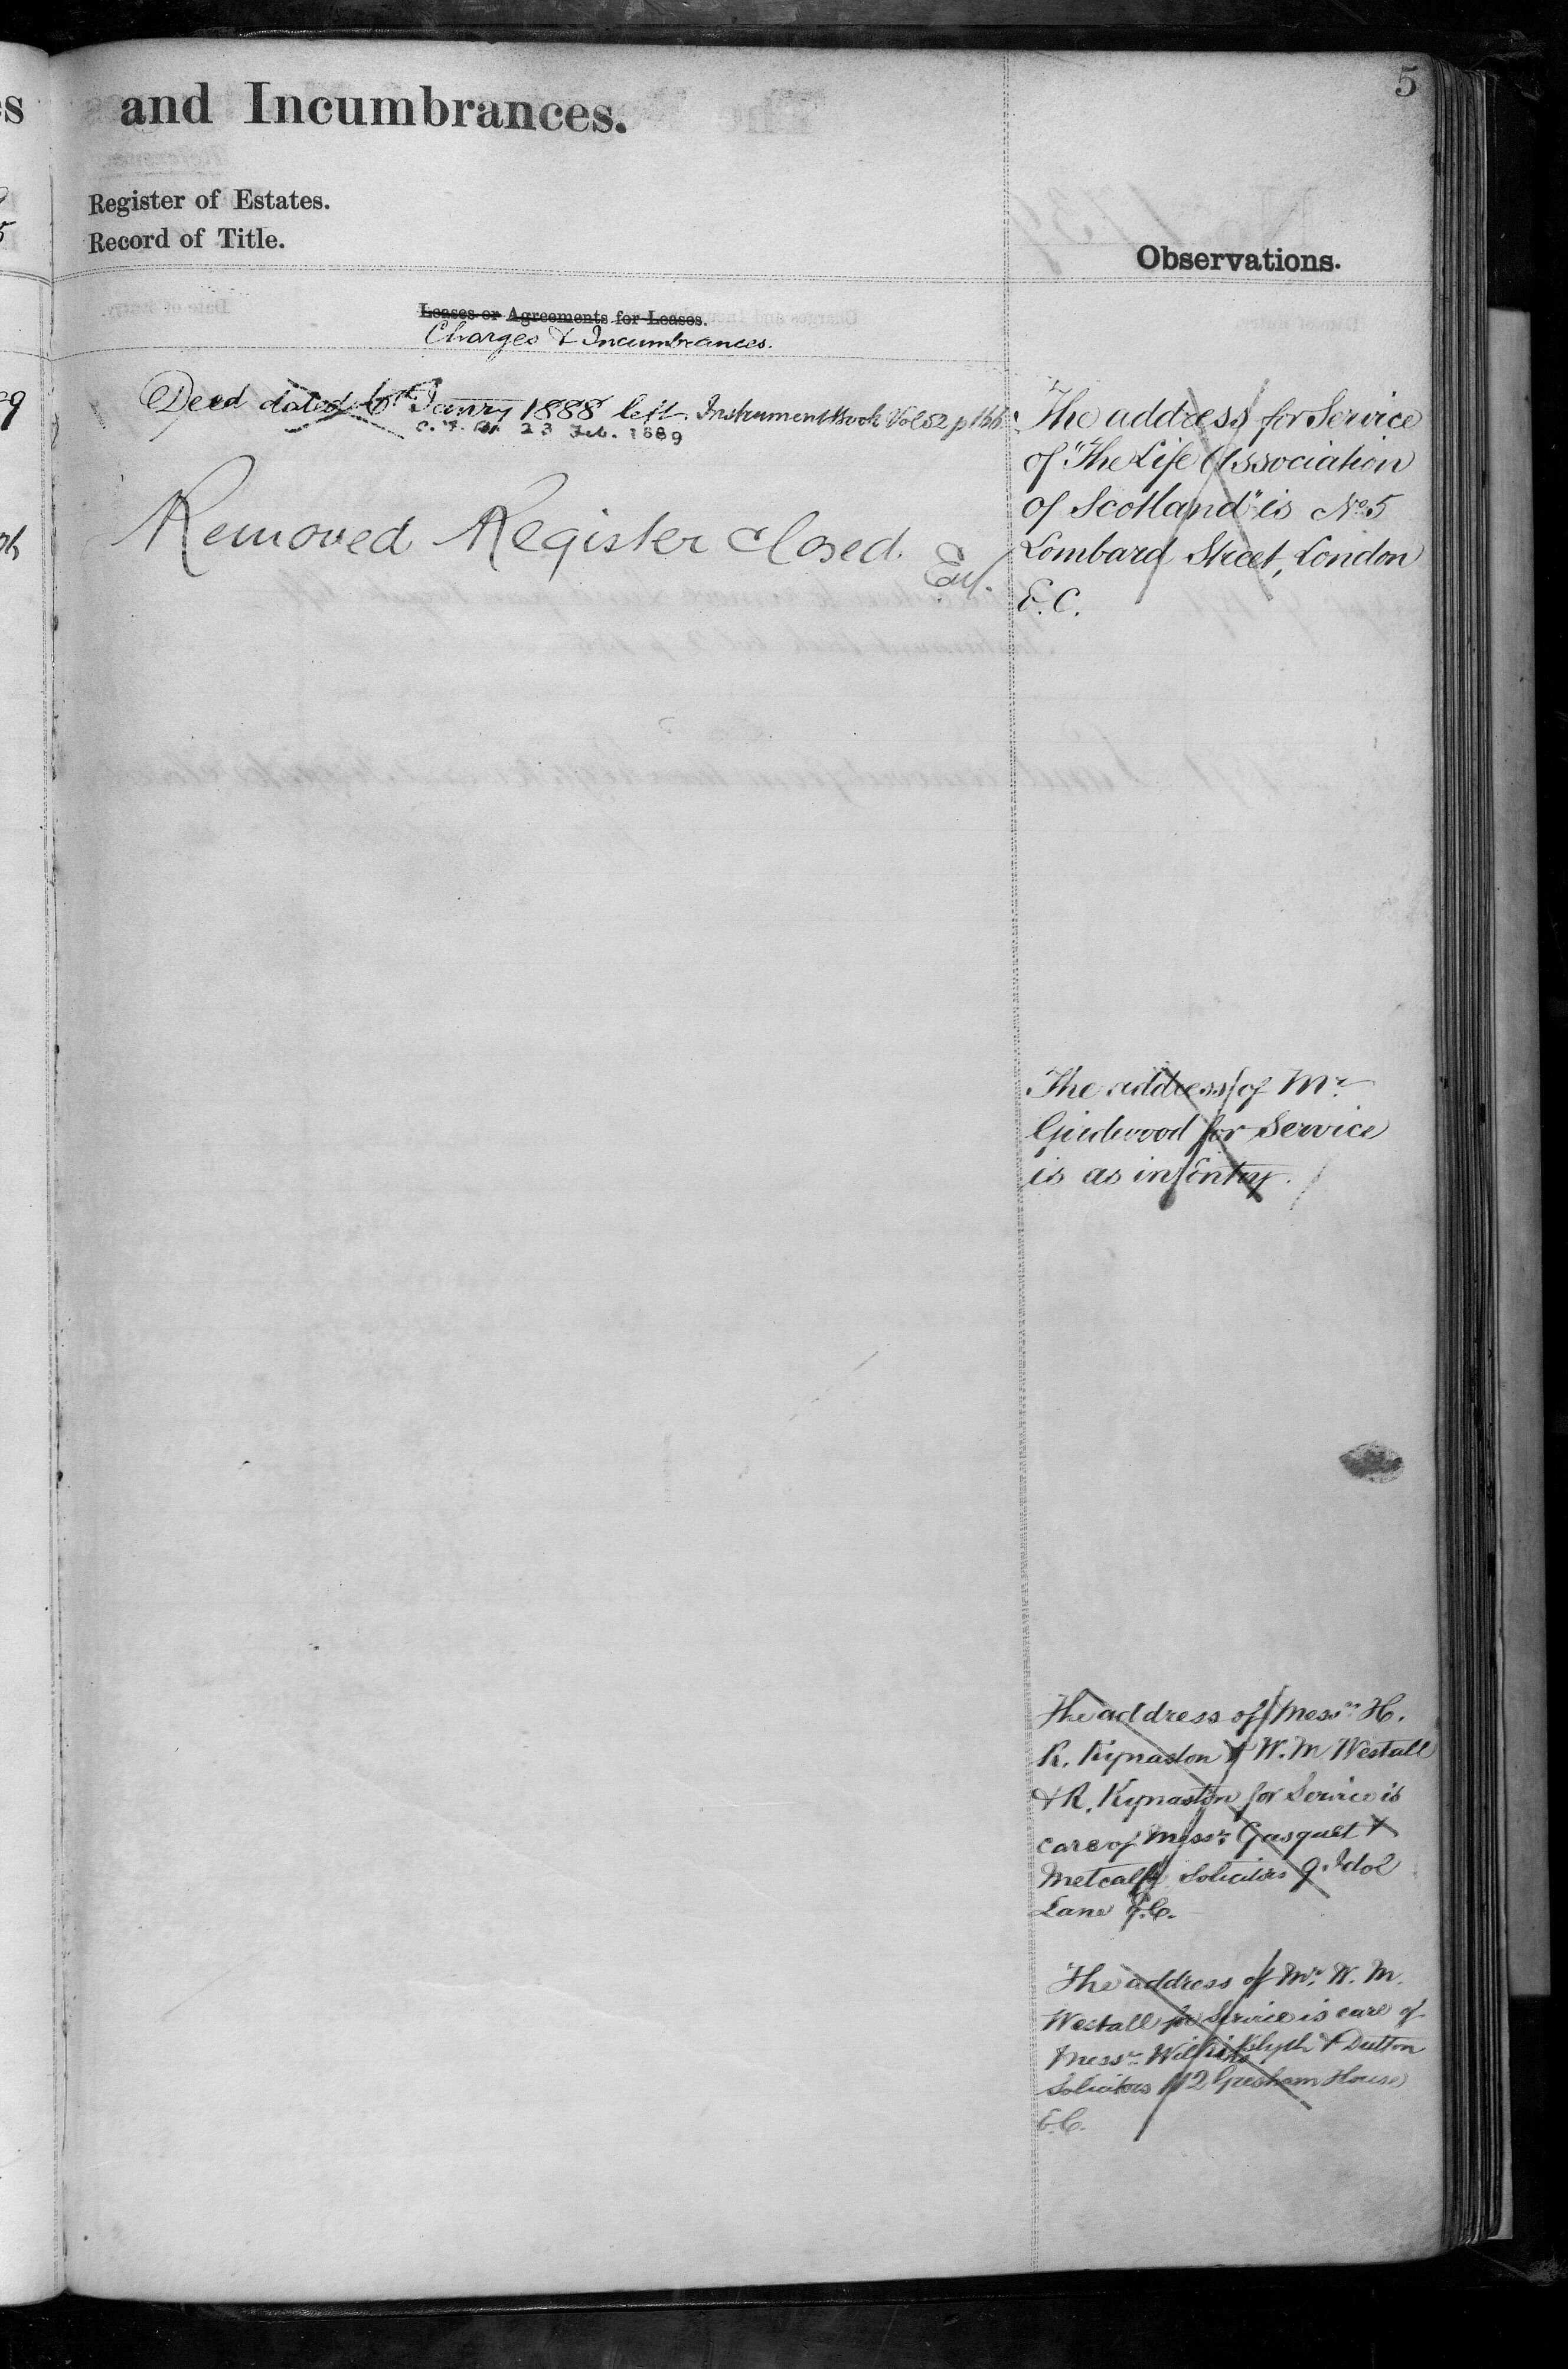 5
and Incumbrances.
Register of Estates.
Record of Title.
Observations.
Leases or Agreements for Leases.
Charges & Incumbrances.
Deed dated 6th Janry 1888 left. Instrument Book Vol 52 p
23 Feb. 1889
Removed Register closed.
The address for Service
of "The Life Association
of Scotland" is No 5
Lombard Street, London
E.C.
The address of Mr
Girdwood for Service
is as in Entry.
The address of Messrs H.
R. Kynaston & W. M. Westall
& R. Kynaston for Service is
care of Messrs Gasquet &
Metcalfe Solicitors 9 Idol
Lane E.C.
The address of Mr. W. M.
Westall for Service is care of
Messrs Wilkins Blyth & Dutton
Solicitors 112 Gresham House
E.C.